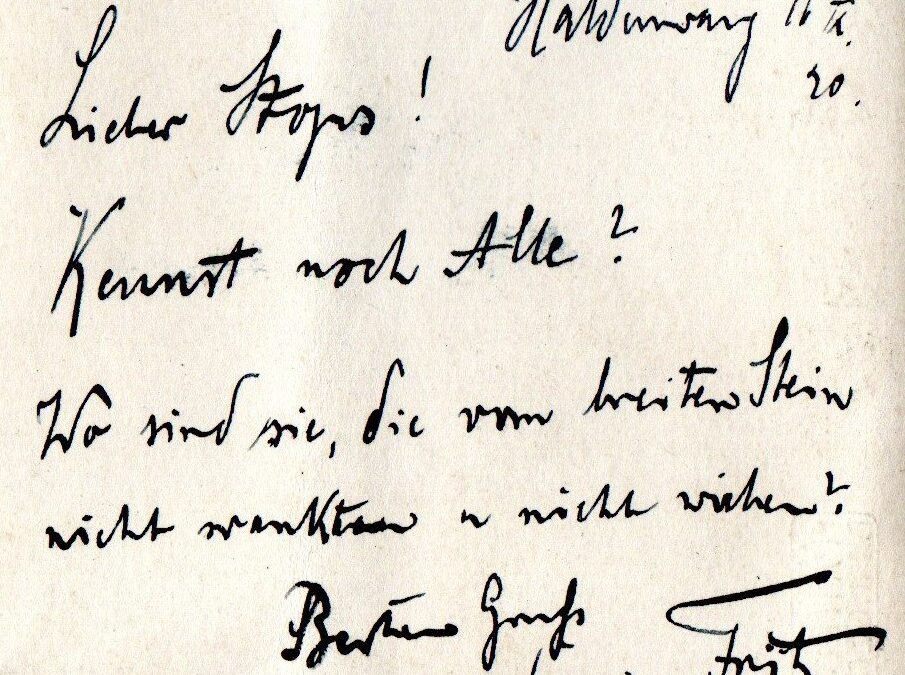 Haldenwang 16 IX.
20.
Lieber Stops!
Kennst noch Alle?
Wo sind sie, die vom breiten Stein
nicht wankten u nicht wichen?
Besten Gruß
Fritz